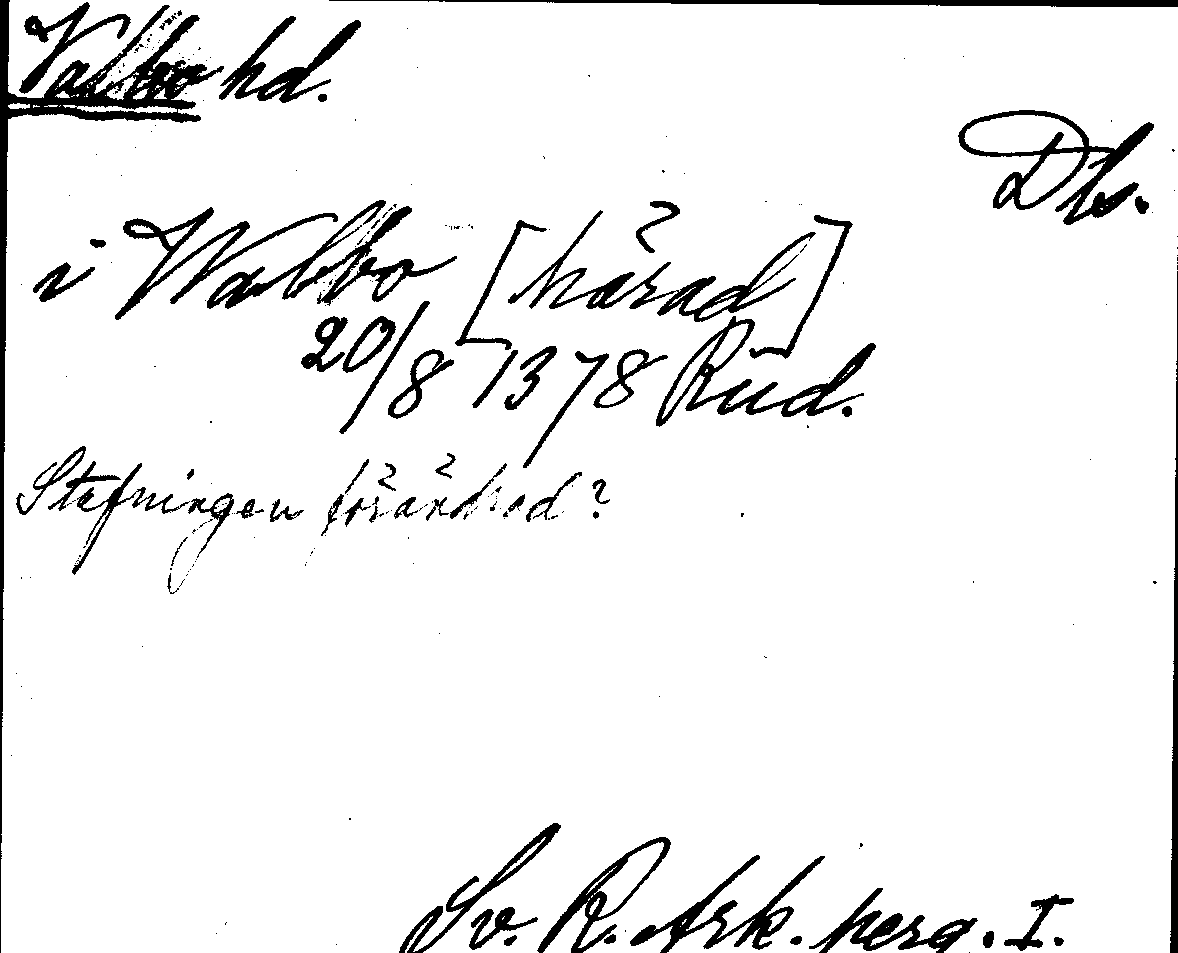 Valbo hd.
Dls.
i Walbo [härad]
20/8 1378 Rüd.
Stafningen förändrad?
Sv. R. Ark. perg. I.